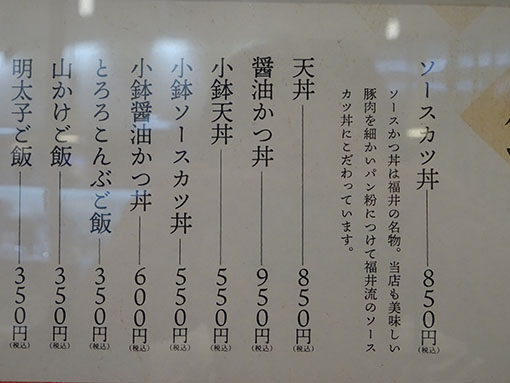 ソースカツ丼 850円(税込)
ソースかつ丼は福井の名物。当店も美味しい
豚肉を細かいパン粉につけて福井流のソース
カツ丼にこだわっています。
天丼 850円(税込)
醤油かつ丼 950円(税込)
小鉢天丼 550円(税込)
小鉢ソースカツ丼 550円(税込)
小鉢醤油かつ丼 600円(税込)
とろろこんぶご飯 350円(税込)
山かけご飯 350円(税込)
明太子ご飯 350円(税込)